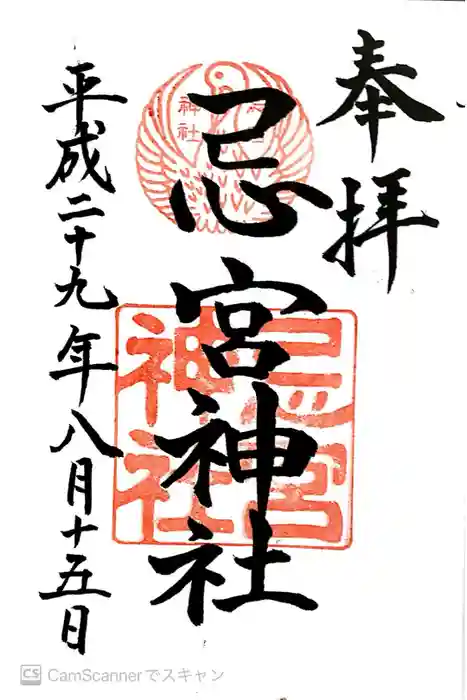 奉拝
忌宮神社
平成二十九年八月十五日
忌宮
神社
忌宮
神社
CS CamScannerでスキャン